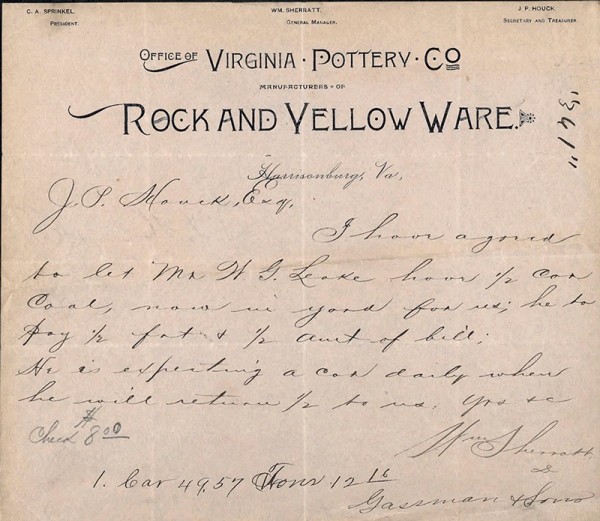 C. A. SPRINKEL, WM. SHERRATT, J. P. HOUCK,
PRESIDENT. GENERAL MANAGER. SECRETARY AND TREASURER.
OFFICE OF VIRGINIA · POTTERY · CO
MANUFACTURERS · OF
ROCK AND YELLOW WARE.
Harrisonburg, Va,
J. P. Houck, Esq,
I have agreed
to let Mr W. G. Leake have 1/2 Car
Coal, now in yard for us; he to
Pay 1/2 frt & 1/2 amt of bill;
He is expecting a car daily when
he will return 1/2 to us. Yrs &c
Check $8.00
Wm Sherratt
&
1. Car 49,57 Tons 12 16
Gassman & Sons